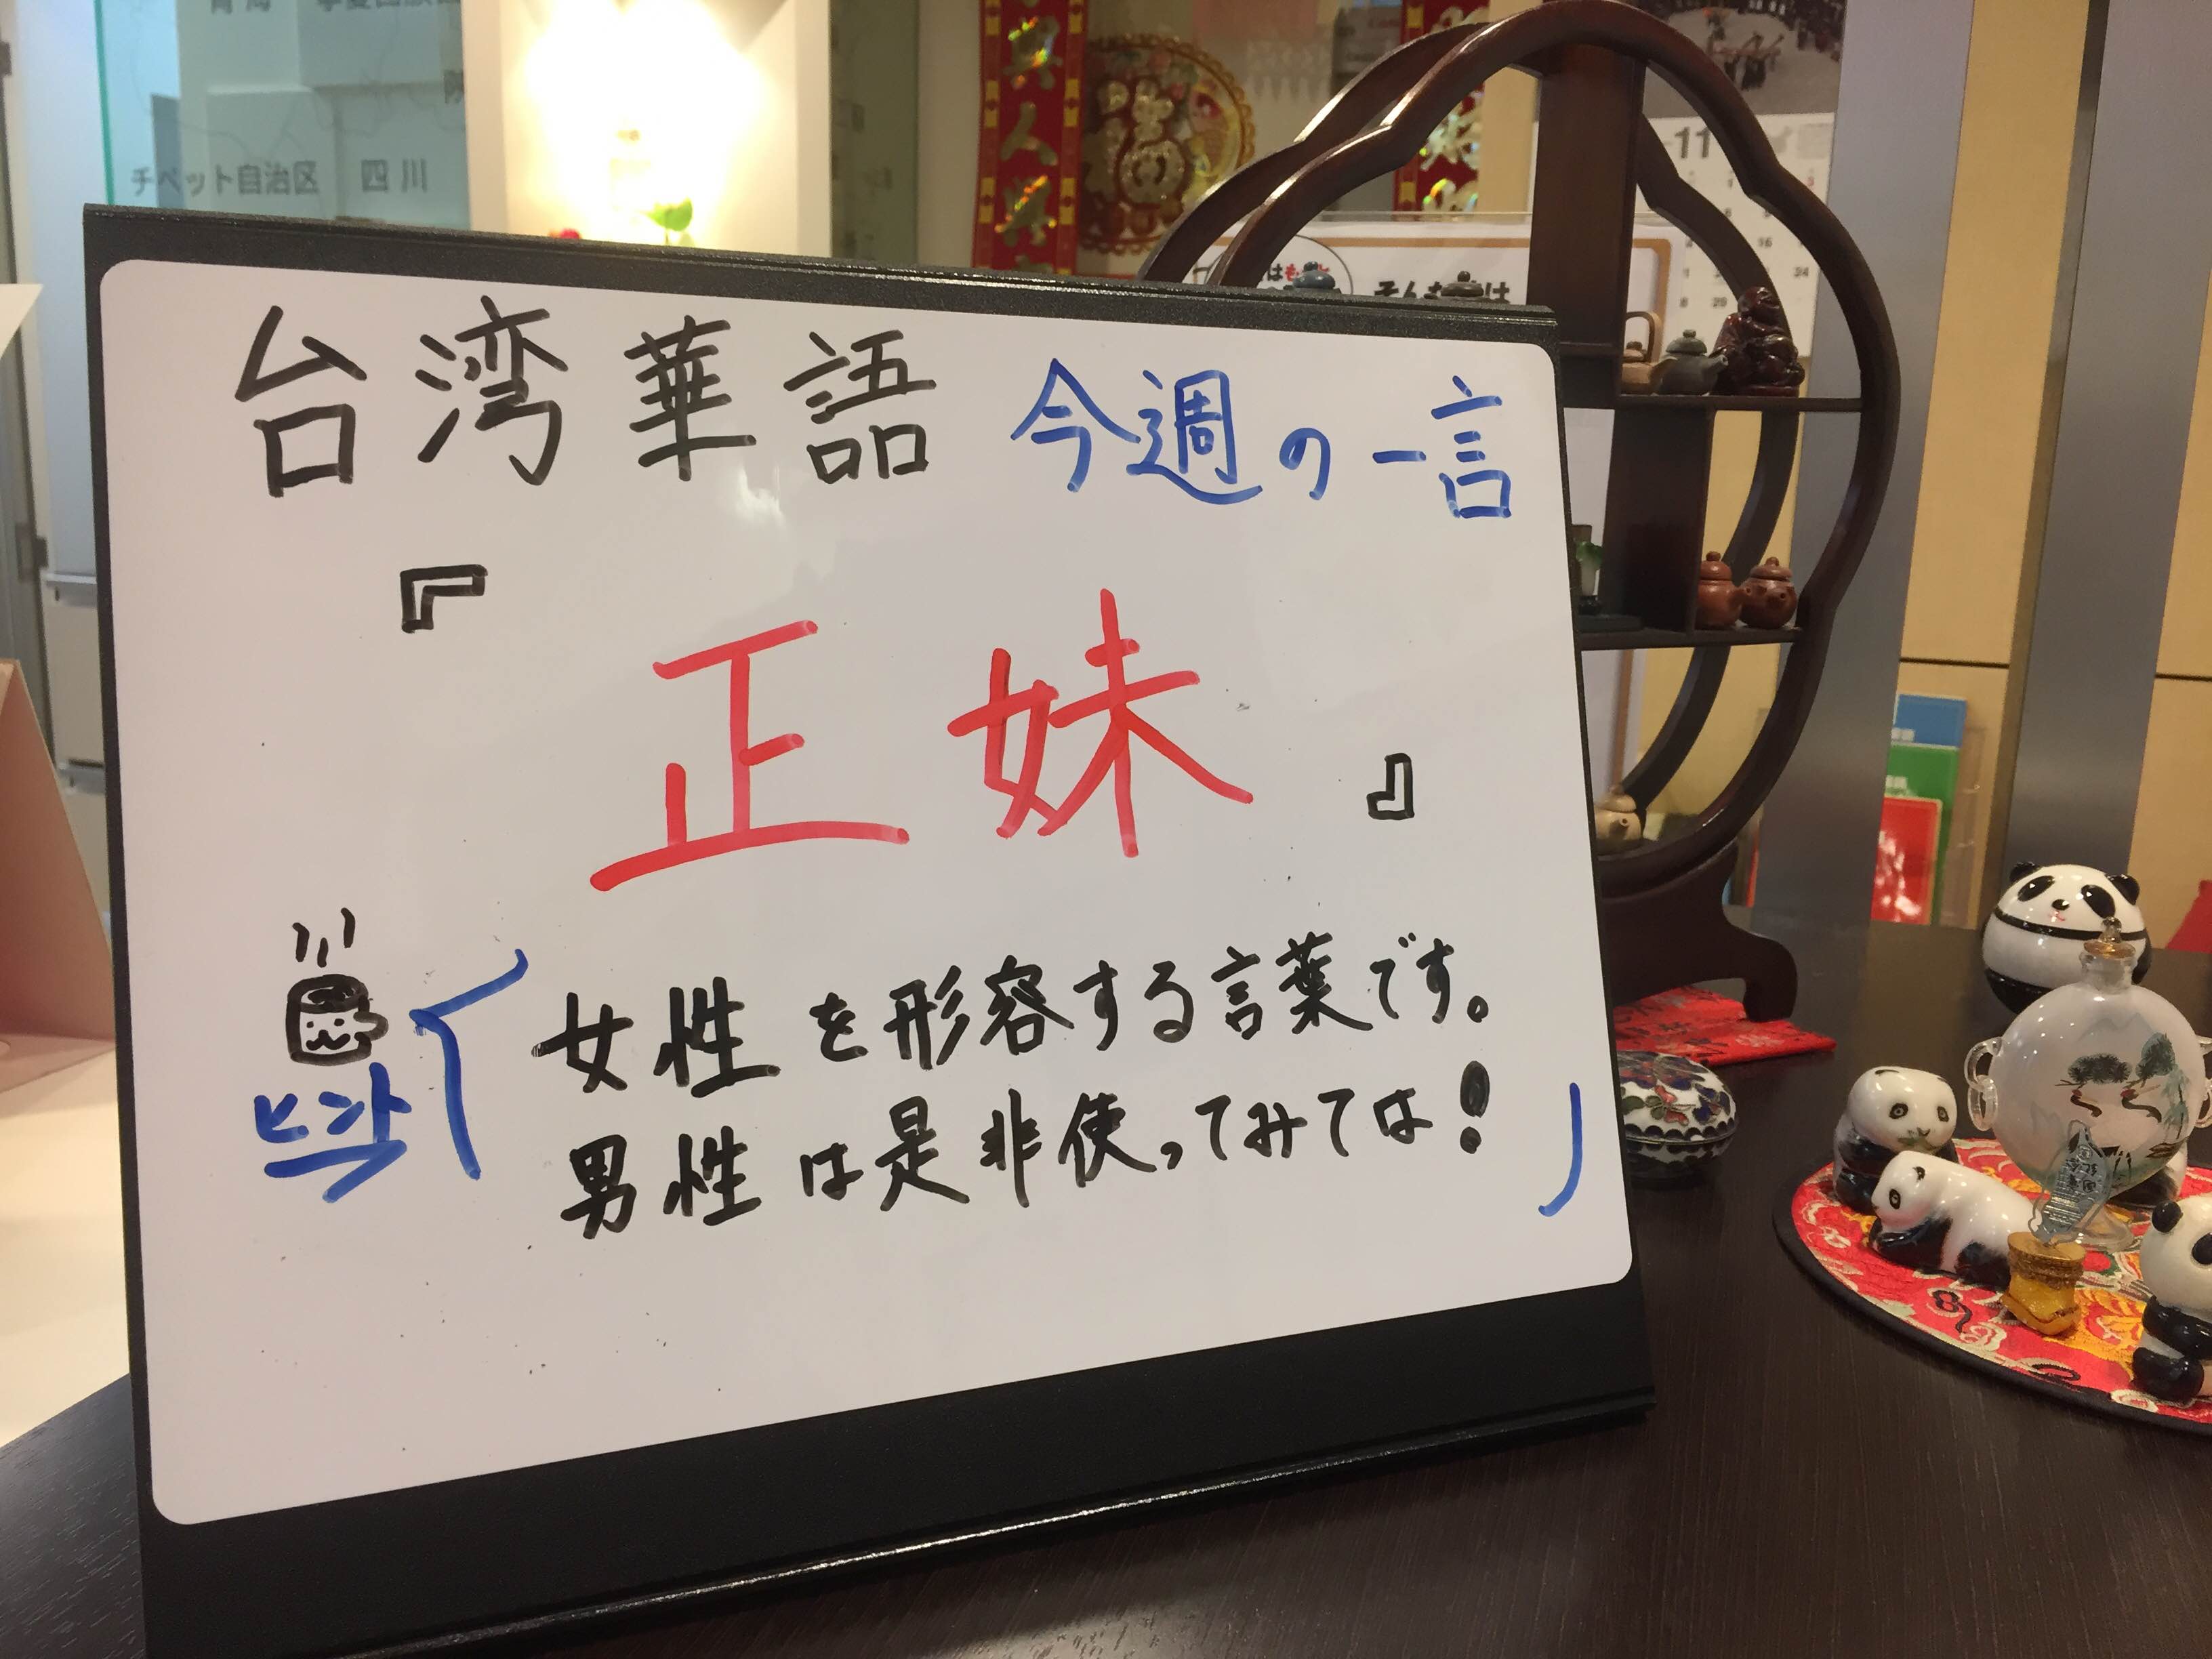 チベット自治区 四川
11
台湾華語 今週の一言
『正妹』
ヒント
女性を形容する言葉です。
男性は是非使ってみては!